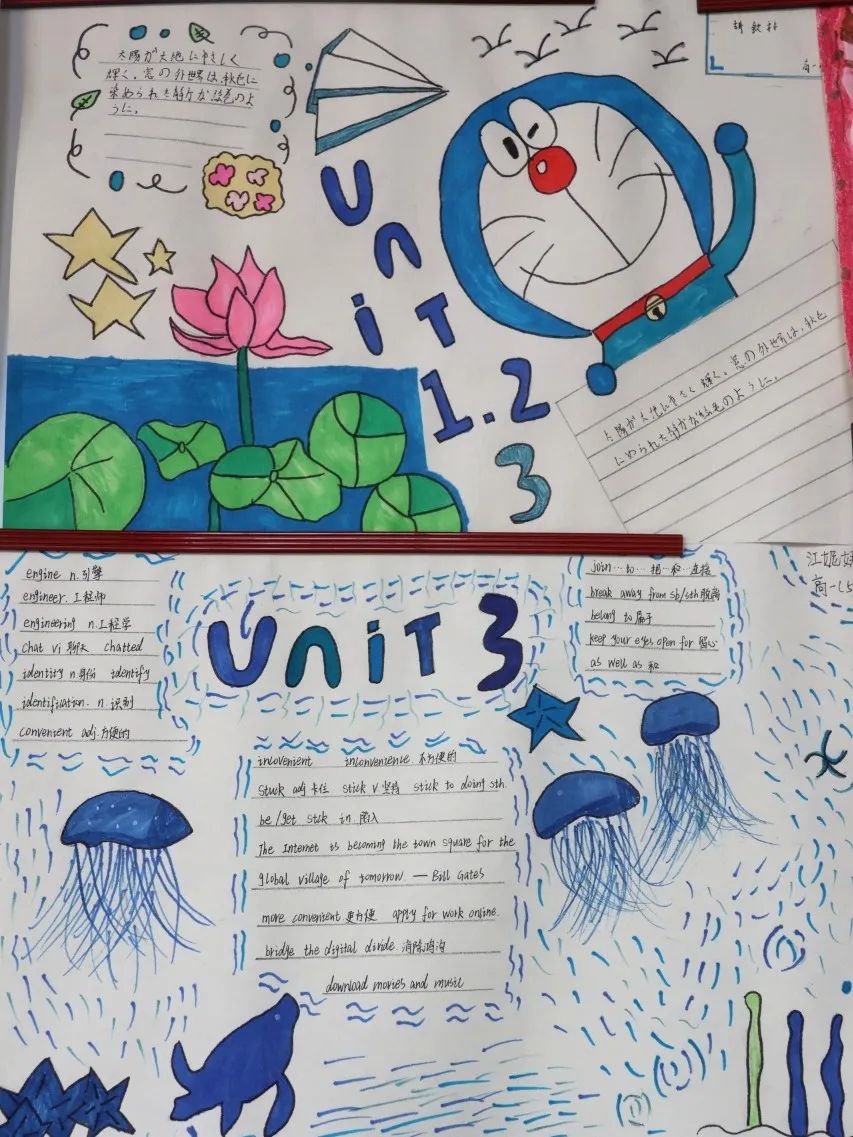 太陽が大地にやさしく
輝く。窓の外世界は、秋色に
染められた静かな絵色のよ
うに。
Unit
1.2
3
太陽が大地にやさしく輝く。窓の外世界は、秋色
にめられた静かな絵色のように。
engine n.引擎
engineer.工程师
engineering n.工程学
chat vi 聊天 chatted
identity n 身份 identify
identification. n. 识别
convenient adj.方便的
Unit 3
join…to… 把…和…连接
break away from sb/sth 脱离
belong to 属于
keep your eyes open for 留心
as well as 和
高一(5
incovenient inconvenience.不方便的
Stuck adj 卡住 stick v 坚持 stick to doing sth.
be/get stck in 陷入
The Internet is becoming the town square for the
global village of tomorrow — Bill Gates
more convenient 更方便 apply for work online.
bridge the digital divide.消除鸿沟
download movies and music